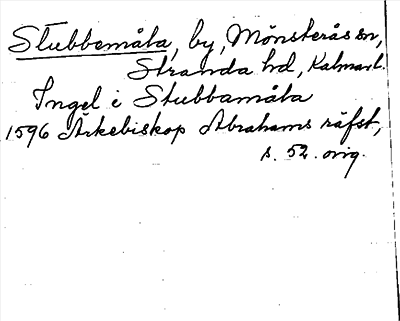 Stubbemåla, by, Mönsterås sn,
Stranda hd, Kalmar l.
Ingel i Stubbamåla
1596 Ärkebiskop Abrahams räfst,
s. 52. orig.